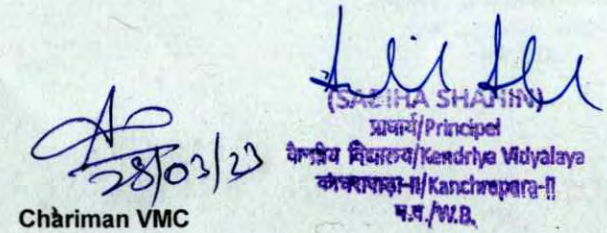 28/03/23
Chariman VMC
SHAHIN)
प्राचार्य/Principal
केन्द्रीय विद्यालय/Kendriya Vidyalaya
कांचरापाड़ा-II/Kanchrapara-II
प.बं./W.B.